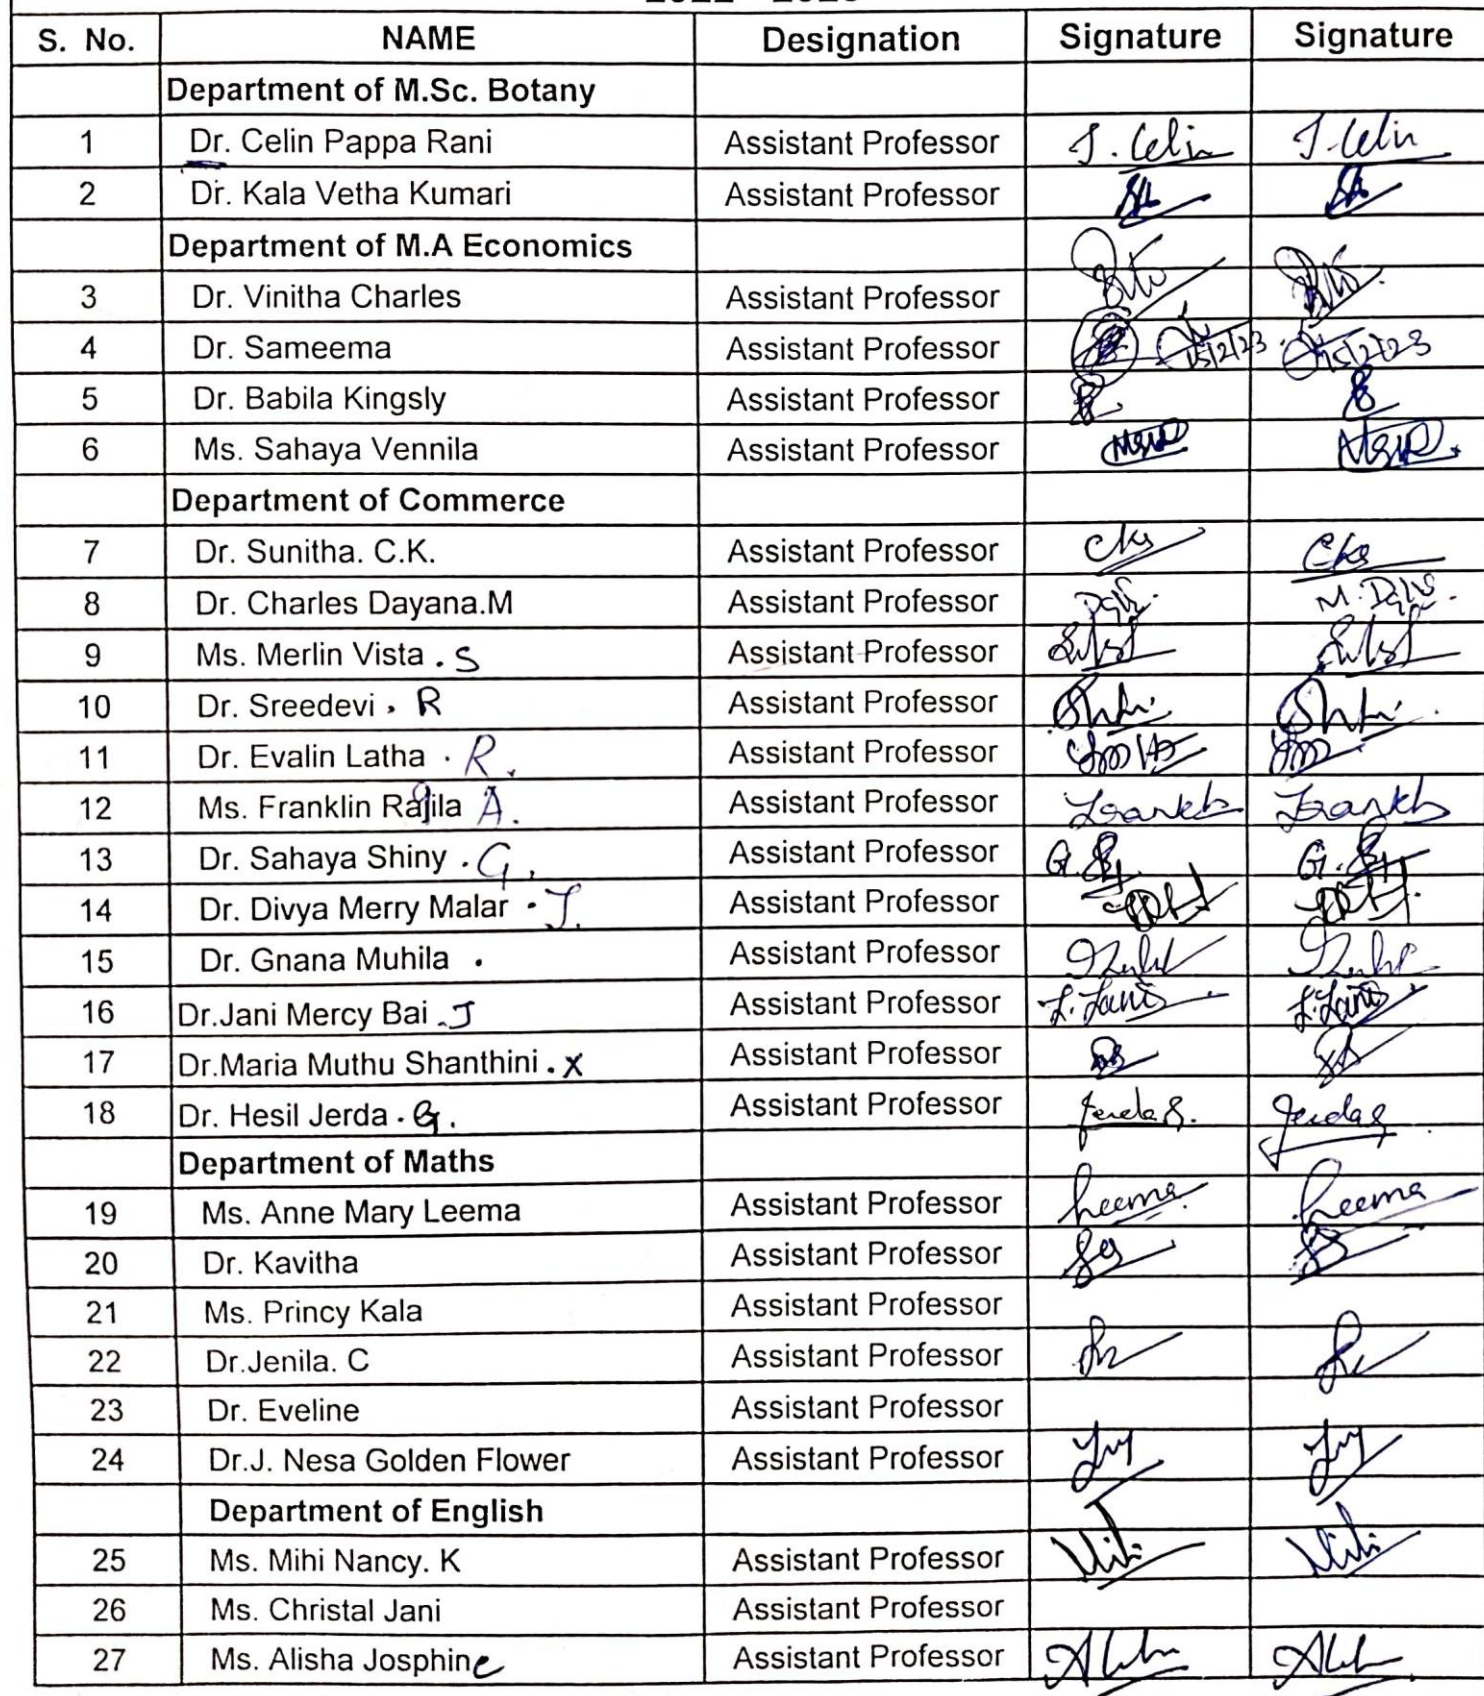 S. No. NAME Designation Signature Signature
Department of M.Sc. Botany
1 Dr. Celin Pappa Rani Assistant Professor J. Celin J. Celin
2 Dr. Kala Vetha Kumari Assistant Professor
Department of M.A Economics
3 Dr. Vinitha Charles Assistant Professor
4 Dr. Sameema Assistant Professor 15/2/23 15/2/23
5 Dr. Babila Kingsly Assistant Professor
6 Ms. Sahaya Vennila Assistant Professor
Department of Commerce
7 Dr. Sunitha. C.K. Assistant Professor Cks Cks
8 Dr. Charles Dayana.M Assistant Professor
9 Ms. Merlin Vista . S Assistant Professor
10 Dr. Sreedevi . R Assistant Professor
11 Dr. Evalin Latha . R. Assistant Professor
12 Ms. Franklin Rajila A. Assistant Professor
13 Dr. Sahaya Shiny . G. Assistant Professor
14 Dr. Divya Merry Malar . J. Assistant Professor
15 Dr. Gnana Muhila . Assistant Professor
16 Dr.Jani Mercy Bai .J Assistant Professor J. Jani J. Jani
17 Dr.Maria Muthu Shanthini . X Assistant Professor
18 Dr. Hesil Jerda . G. Assistant Professor
Department of Maths
19 Ms. Anne Mary Leema Assistant Professor Leema Leema
20 Dr. Kavitha Assistant Professor
21 Ms. Princy Kala Assistant Professor
22 Dr.Jenila. C Assistant Professor
23 Dr. Eveline Assistant Professor
24 Dr.J. Nesa Golden Flower Assistant Professor
Department of English
25 Ms. Mihi Nancy. K Assistant Professor Mihi Mihi
26 Ms. Christal Jani Assistant Professor
27 Ms. Alisha Josphine Assistant Professor